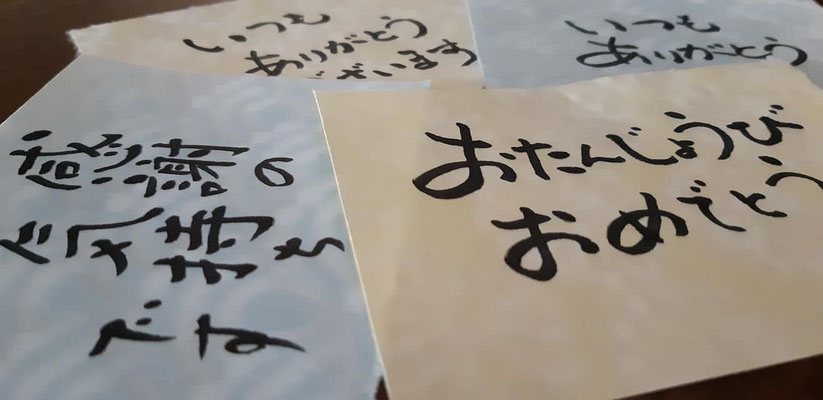 いつも
ありがとう
ございます
いつも
ありがとう
感謝の
気持ち
です
おたんじょうび
おめでとう